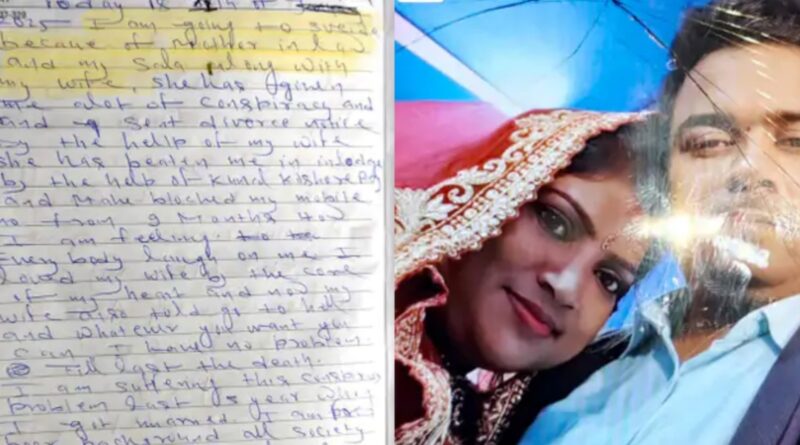 Today is
2025 I am going to sucide
because of Mother in law
and my Sala along with
my wife, she has given
me alot of conspiracy and
and sent divorce notice
by the hellp of my wife
she has beaten me in
by the hellp of Kishore
and Make blocked my mobile
no from 9 Months to
I am feeling to
Every body laugh on me I
loved my wife by the core
of my heart and now my
wife also told go to hell
and whatever you want you
can I have no problem.
till last the death.
I am suffering this
problem last year when
I got married. I am
background all society